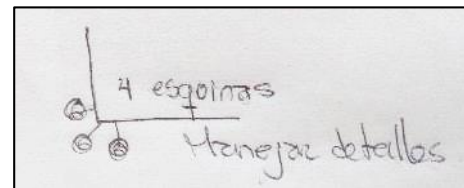 4 esquinas
Manejar detalles